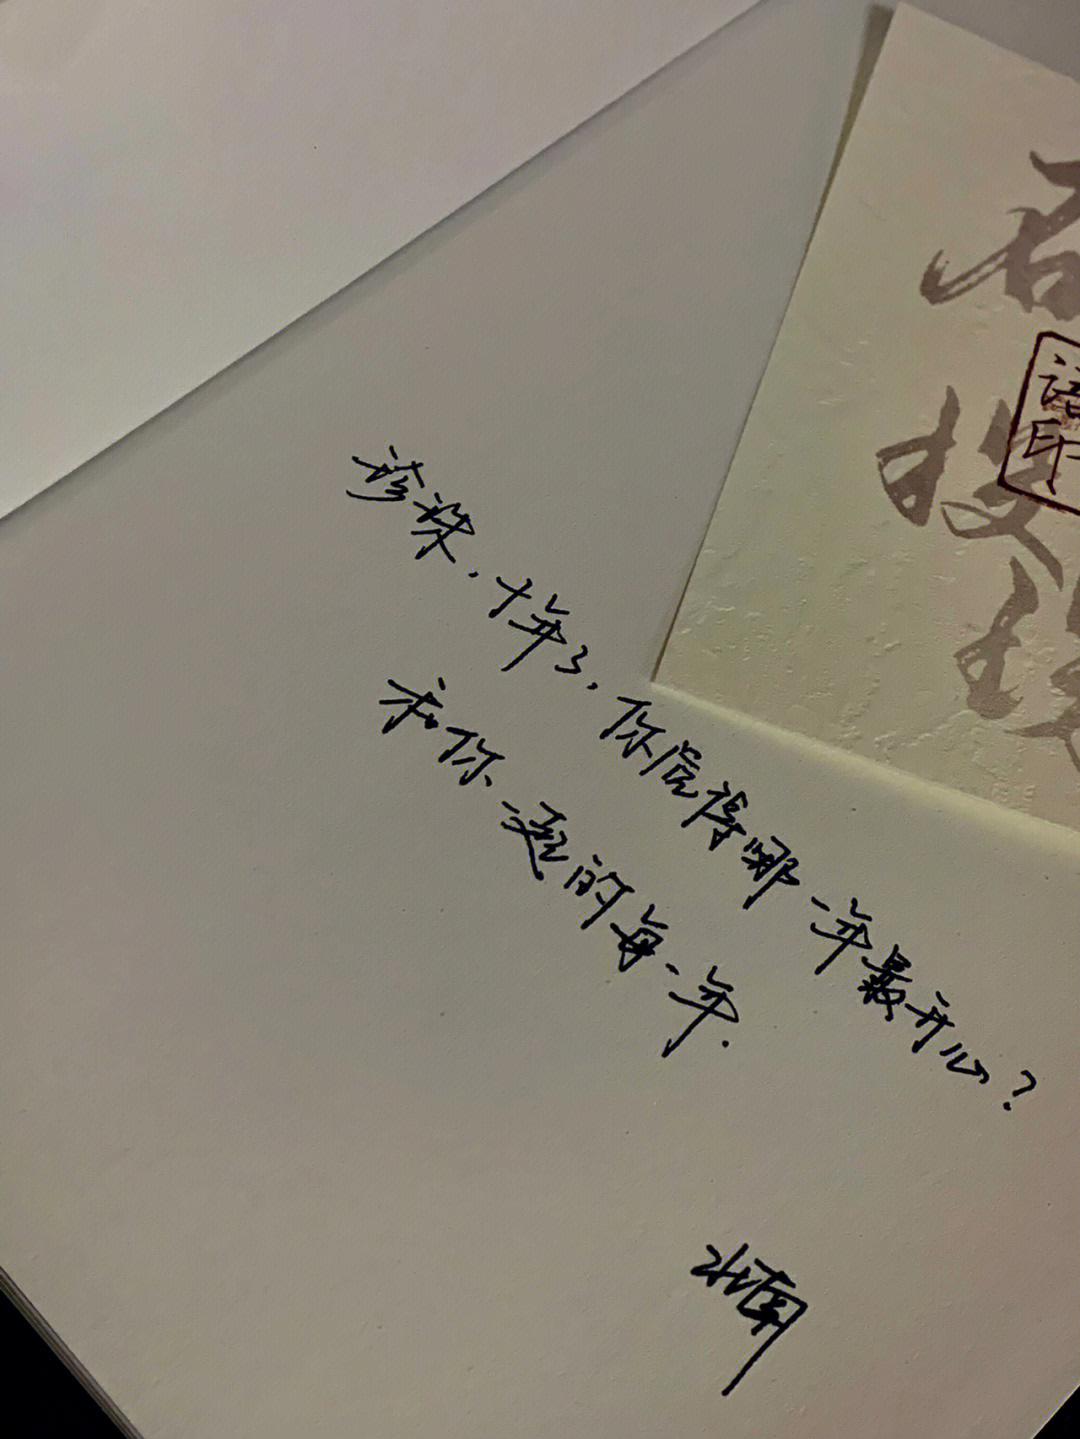 珍珠，十年了，你觉得哪一年最开心？
和你一起的每一年.
水南
语印